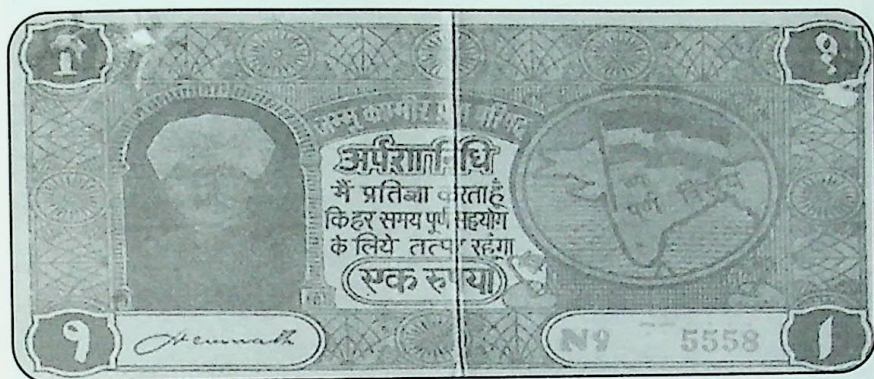 १
जम्मू कश्मीर प्रजा परिषद
अर्पण निधि
मैं प्रतिज्ञा करता हूँ
कि हर समय पूर्ण सहयोग
के लिये तत्पर रहूंगा
एक रुपया
१
Nº 5558